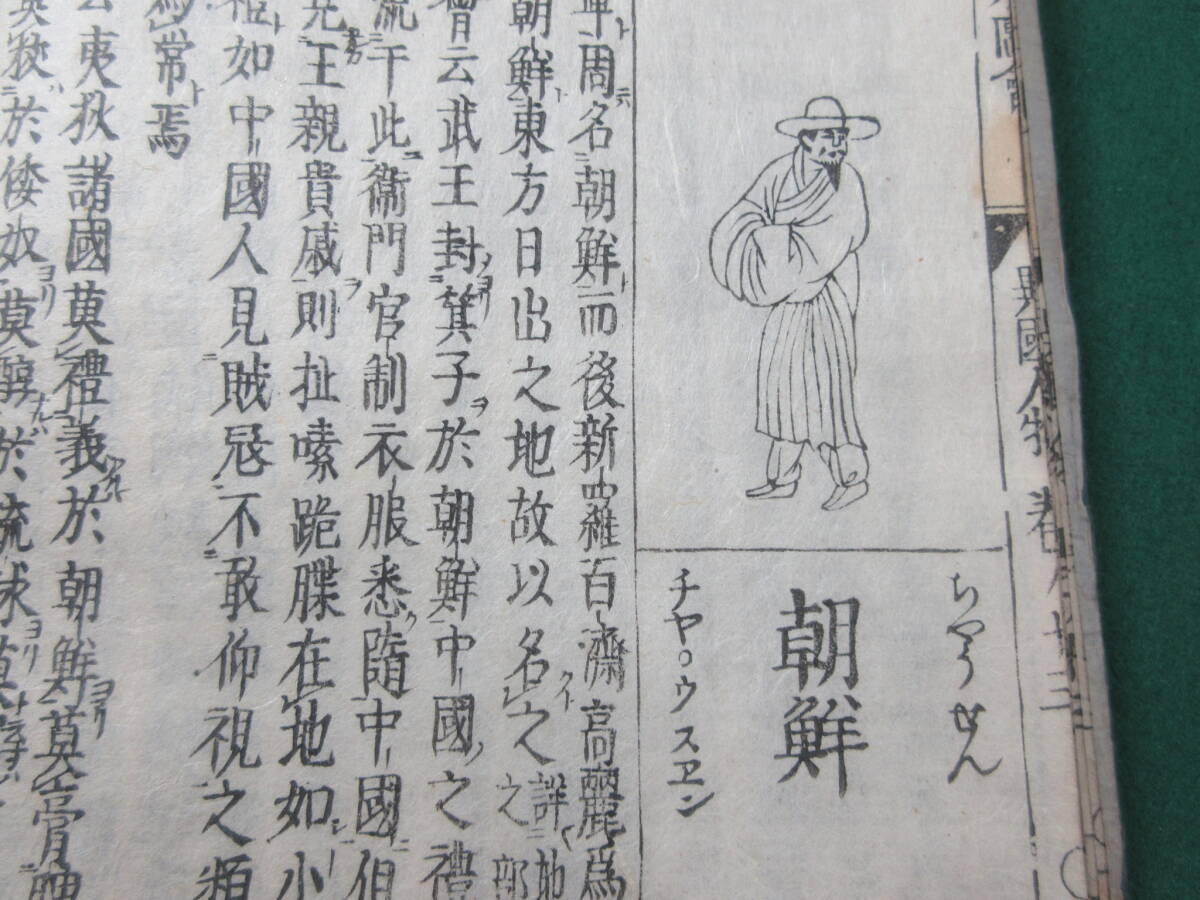 異國人物
ちやうせん
朝鮮
チヤ。ウスエン
周名朝鮮而後新羅百濟高麗爲
朝鮮東方日出之地故以名之詳地之部
會云武王封箕子於朝鮮中國之禮
流于此衙門官制衣服悉隨中國但
王親貴戚則扯嗉跪膝在地如小
禮如中國人見賊忌不敢仰視之類
爲常焉
夷狄諸國莫禮義於朝鮮莫膏腴
於倭奴莫醇於琉球莫